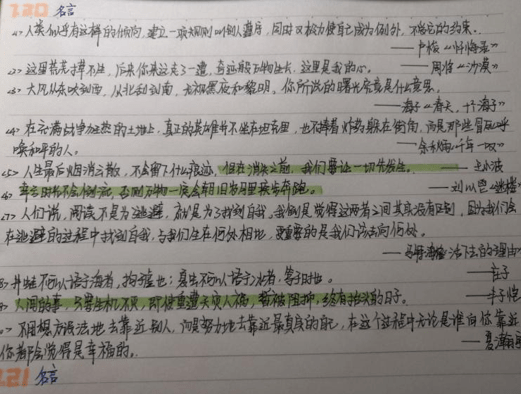 7.20 名言
<1> 人类似乎有这样的倾向，建立一项规则叫别人遵守，同时又极力使自己成为例外，不受它的约束。
——卢梭《忏悔录》
<2> 这里荒芜寸草不生，后来你来这走了一遭，奇迹般万物生长，这里是我的心。
——周伟《沙漠》
<3> 大风从东吹到西，从北刮到南，无视黑夜和黎明，你所说的曙光究竟是什么意思。
——海子《春天，十个海子》
<4> 在充满战争的土地上，真正的英雄并不坐在坦克里，也不捧着炸药躲在街角，而是那些冒死呼
唤和平的人。
——余秋雨《千年一叹》
<5> 人生最后烟消云散，不会留下什么痕迹，但在消失之前，我们要让一切发生。——王小波
<6> 幸亏时光不会倒流，否则万物一定会朝旧岁月里疾步奔跑。
<7> 人们说，阅读不是为逃避，就是为了找到自我，我倒是觉得这两者之间其实没有区别，因为我们会
在逃避的过程中找到自我，与我们生在何处相比，更重要的是我们该去向何处。
活下去的理由》
<8> 井蛙不可以语于海者，拘于墟也；夏虫不可以语于冰者，笃于时也。——庄子
<9> 人间的事，只要生机不灭，即使重遭天灾人祸，暂被阻抑，终有抬头的日子。——丰子恺
不用想方设法地去靠近别人，而是努力地去靠近最真实的自己，在这个过程中无论是谁向你靠近
你都会觉得是幸福的。
7.21 名言